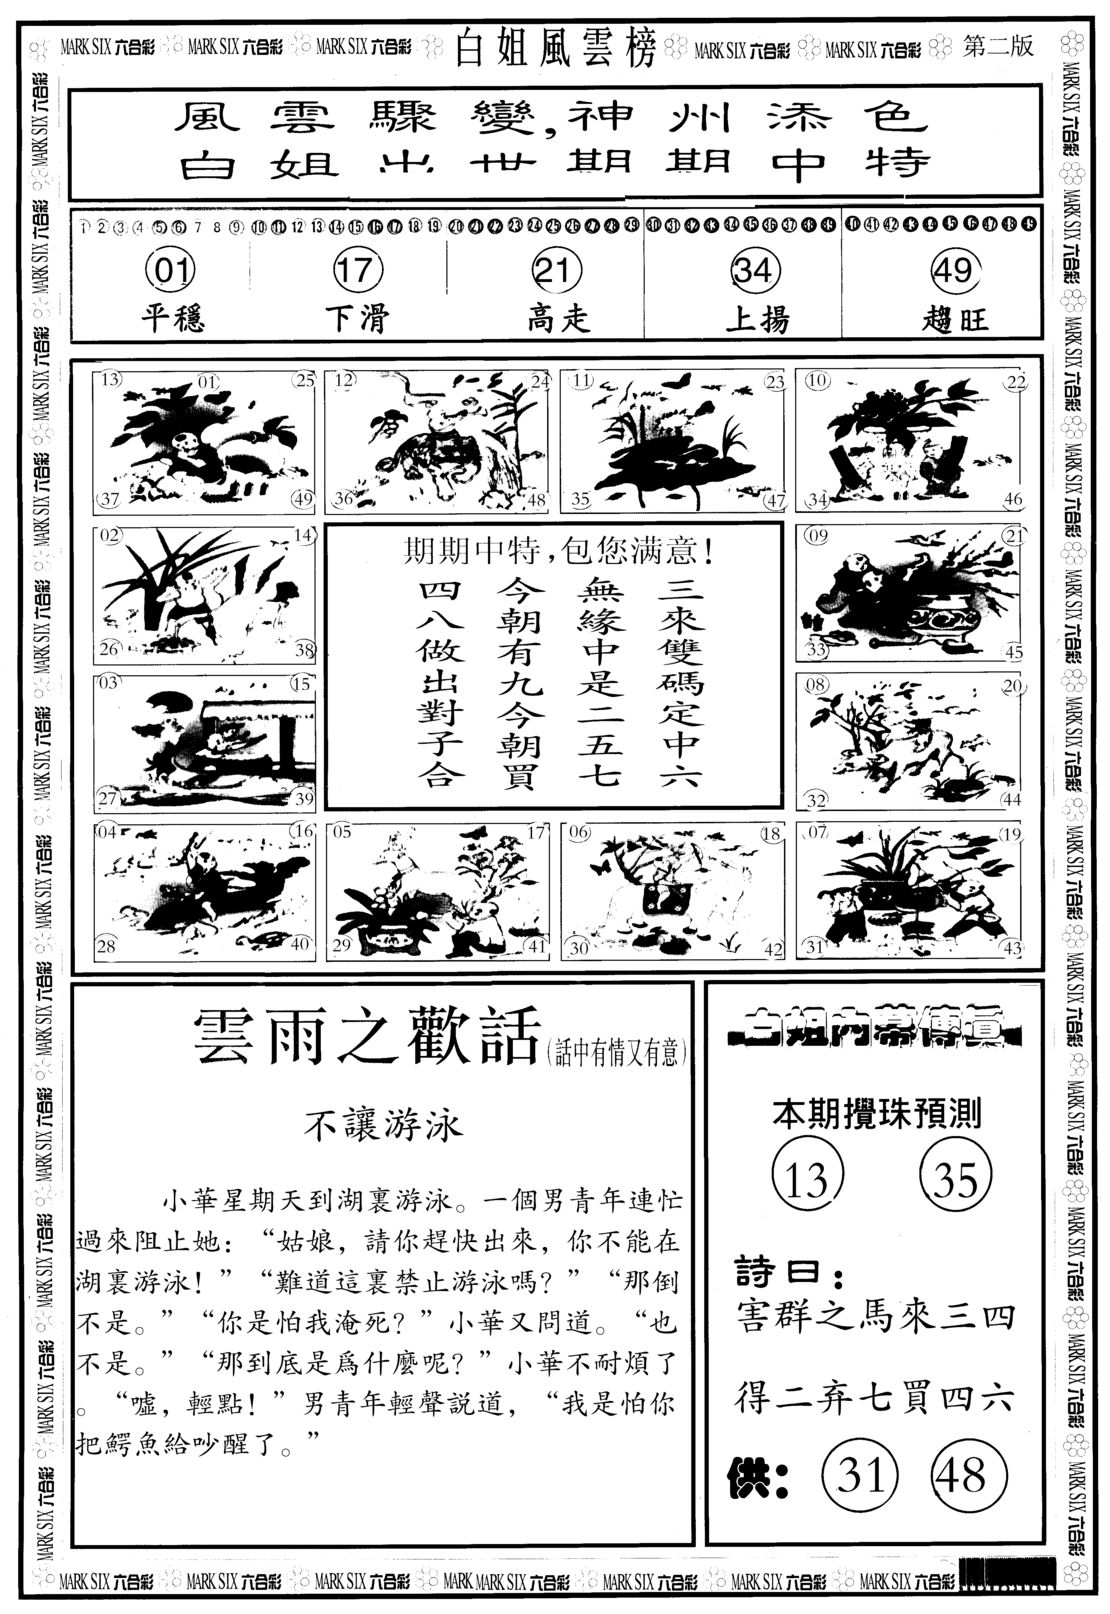 MARK SIX 六合彩 MARK SIX 六合彩 MARK SIX 六合彩 白姐風雲榜 MARK SIX 六合彩 MARK SIX 六合彩 第二版
風雲驟變,神州添色
白姐出世期期中特
1 2 3 4 5 6 7 8 9 10 11 12 13 14 15 16 17 18 19 20 21 22 23 24 25 26 27 28 29 30 31 32 33 34 35 36 37 38 39 40 41 42 43 44 45 46 47 48 49
01 17 21 34 49
平穩 下滑 高走 上揚 趨旺
13 01 25 12 24 11 23 10 22
37 49 36 48 35 47 34 46
02 14 09 21
26 38 33 45
03 15 08 20
27 39 32 44
04 16 05 17 06 18 07 19
28 40 29 41 30 42 31 43
期期中特,包您满意!
三來雙碼定中六
無緣中是二五七
今朝有九今朝買
四八做出對子合
雲雨之歡話(話中有情又有意)
不讓游泳
小華星期天到湖裏游泳。一個男青年連忙
過來阻止她:“姑娘,請你趕快出來,你不能在
湖裏游泳!”“難道這裏禁止游泳嗎?”“那倒
不是。”“你是怕我淹死?”小華又問道。“也
不是。”“那到底是爲什麼呢?”小華不耐煩了
。“噓,輕點!”男青年輕聲説道,“我是怕你
把鰐魚給吵醒了。”
白姐内幕傳真
本期攪珠預測
13 35
詩曰:
害群之馬來三四
得二弃七買四六
供: 31 48
MARK SIX 六合彩 MARK SIX 六合彩 MARK SIX 六合彩 MARK MARK SIX 六合彩 MARK SIX 六合彩 MARK SIX 六合彩 MARK SIX 六合彩